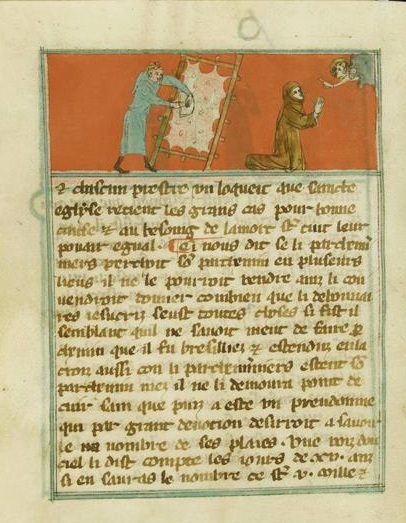 ⁊ chascun prestre un loqueit que saincte
eglyse retient les grans cas pour bonne
cause ⁊ au besoing de la mort st tuit leur
pouair egual. Ci nous dit se li parchemi
niers percoit so parchemin en plusieurs
lieus il ne le pourroit tendre ainz li con
vendroit donner combien que li debonnai
res ihesucriz seust toutes choses si fist il
semblant quil ne savoit nient de faire p
chemin que il fu bresilliez ⁊ estendu en la
croiz aussi con li parcheminiers estent so
parchemin mez il ne li demoura point de
cuir sain que puiz a este un preudomme
qui par grant devotion desirroit a savoir
le nombre de ses plaies. Une voiz dou
ciel li dist compte les iours de .xv. anz
si en sauras le nombre ce st .v. mille ⁊